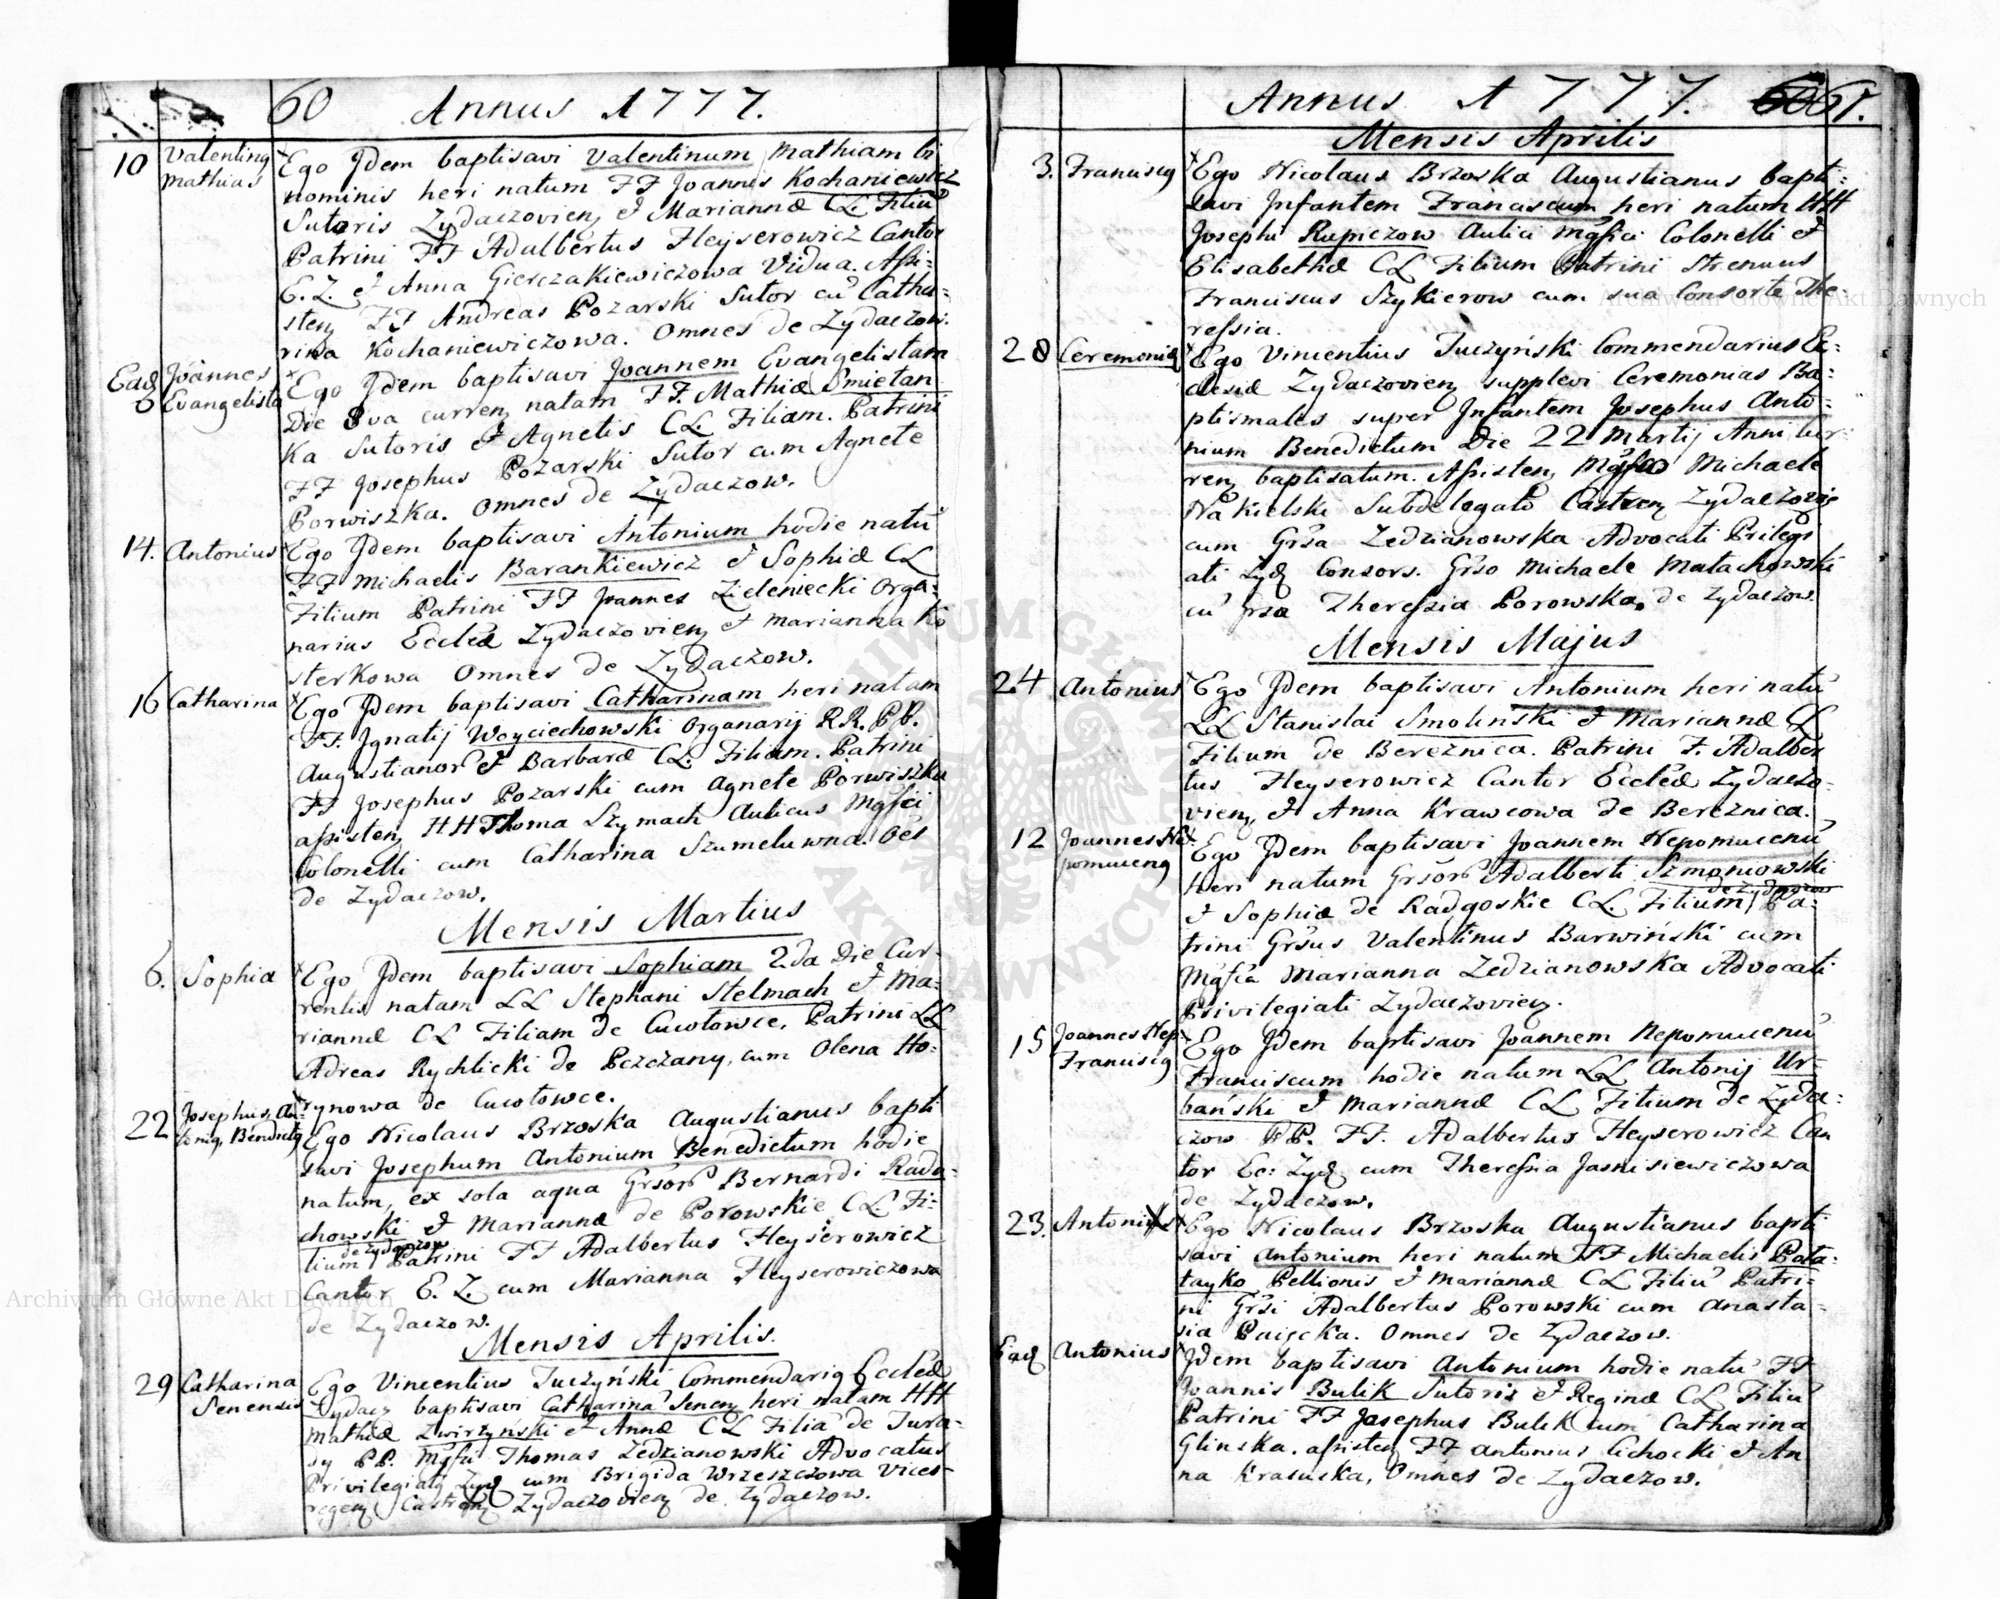 60 Annus 1777.
10 Valentinq Mathias
Ego Jdem baptisavi Valentinum Mathiam bi
nominis heri natum FF Joannis Kochaniewicz
Sutoris Zydaczovien, et Mariannæ CL. Filiu
Patrini FF Adalbertus Heyserowicz Cantor
E. Z. et Anna Gierczakiewiczowa Vidua. Assi:
sten, FF Andreas Pozarski Sutor cu Catha:
rina Kochaniewiczowa. Omnes de Zydaczow.
Eadg 8 Joannes Evangelista
Ego Jdem baptisavi Joannem Evangelistam
Die 8va curren, natam FF. Mathiæ Smietan
Ka Sutoris et Agnetis CL. Filiam. Patrini
FF Josephus Pozarski Sutor cum Agnete
Porwiszka. Omnes de Zydaczow.
14. Antonius
Ego Jdem baptisavi Antonium hodie natu
FF Michaelis Barankiewicz et Sophiæ CL
Filium Patrini FF Joannes Zieleniecki Orga:
narius Eccleæ Zydaczovien, et Marianna Ko
sterkowa Omnes de Zydaczow.
16 Catharina
Ego Jdem baptisavi Catharinam heri natam
FF. Jgnatij Woyciechowski Organarij R.R. P.P.
Augustianor et Barbaræ CL. Filiam. Patrini
FF Josephus Pozarski cum Agnete Porwiszka
assisten, HH Thoma Szymach Aulicus Mgfici
Colonelli cum Catharina Szumeluwna. Oes
de Zydaczow.
Mensis Martius
6. Sophia
Ego Jdem baptisavi Sophiam 2da Die Cur-
rentis natam LL Stephani Stelmach et Ma-
riannæ CL Filiam de Cucotowce, Patrini LL
Adreas Rychlicki de Pczczany, cum Olena Ho:
rynowa de Cucotowce.
22 Josephus, An:
toniq, Bendictq
Ego Nicolaus Brzoska Augustianus bapti
savi Josephum Antonium Benedictum hodie
natum, ex sola aqua Grsor Bernardi Rado:
chowski et Mariannæ de Porowskie CL. Fi:
de Zydaczow
lium Patrini FF Adalbertus Heyserowicz
Cantor E. Z. cum Marianna Heyserowiczowa
de Zydaczow.
Mensis Aprilis.
29 Catharina Senensis
Ego Vincentius Tuczyński Commendariq Eccleæ
Zydacz baptisavi Catharina Senen, heri natam HH
Mathiæ Zwirzyński et Annæ CL Filia de Tura-
dy PP. Mgfci Thomas Zedzianowski Advocatus
Privilegiatq Zydg cum Brigida Wrzeszczowa Vices-
regen, Castren, Zydaczovien, de Zydaczow.
Annus 1777. 61.
Mensis Aprilis
3. Franciscq
Ego Nicolaus Brzoska Augustianus bapti:
savi Jnfantem Franciscum heri natum HH
Josephi Rupiczow Aulici Mgfici Colonelli et
Elisabethæ CL Filium Patrini Strenuus
Franciscus Szykierow cum sua Consorte The-
ressia.
28 Ceremoniq
Ego Vincentius Tuczyński Commendarius Ec:
clesiæ Zydaczovien, supplevi Ceremonias Ba:
ptismales super Jnfantem Josephus Anto:
nium Benedictum Die 22 Martij Anni cur:
ren, baptisatum. Assisten, Mgfco Michaele
Nakielski Subdelegato Castren, Zydaczovie
cum Grsa Zedzianowska Advocati Prilegi
ati Zydg Consors. Grso Michaele Matachowski
cu Grsa Theressia Porowska, de Zydaczow
Mensis Majus
24 Antonius
Ego Jdem baptisavi Antonium heri natu
LL Stanislai Smolinski et Mariannæ CL
Filium de Bereznica. Patrini F. Adalber
tus Heyserowicz Cantor Eccleæ Zydaczo-
vien, et Anna Krawcowa de Bereznica.
12 Joannes Ne
pomucenq
Ego Jdem baptisavi Joannem Nepomucenu
heri natum Grsor Adalberti Szmoniowski
de Zydaczow
et Sophiæ de Radgoskie CL. Filium Pa-
trini Grsus Valentinus Barwiński cum
Mgfca Marianna Zedzianowska Advocati
Privilegiati Zydaczovien,.
15 Joannes Nep.
Franciscq
Ego Jdem baptisavi Joannem Nepomucenu
Franciscum hodie natum LL Antonij Ur-
bański et Mariannæ CL Filium de Zyda:
czow PP. FF. Adalbertus Heyserowicz Can
tor Ec: Zydg cum Theressia Jasnisiewiczowa
de Zydaczow.
23. Antonius
Ego Nicolaus Brzoska Augustianus bapti
savi Antonium heri natum FF Michaelis Pata:
tayko Pellionis et Mariannæ CL Filiu Patri-
ni Grsi Adalbertus Porowski cum Anasta-
sia Paięcka. Omnes de Zydaczow.
Eadg Antonius
Jdem baptisavi Antonium hodie natu FF
Joannis Bulik Sutoris et Reginæ CL Filiu
Patrini FF Josephus Bulik cum Catharina
Glinska. assisten, FF Antonius Cichocki et An
na Krasucka, Omnes de Zydaczow.
Archiwum Główne Akt Dawnych
Archiwum Główne Akt Dawnych
ARCHIWUM GŁÓWNE AKT DAWNYCH